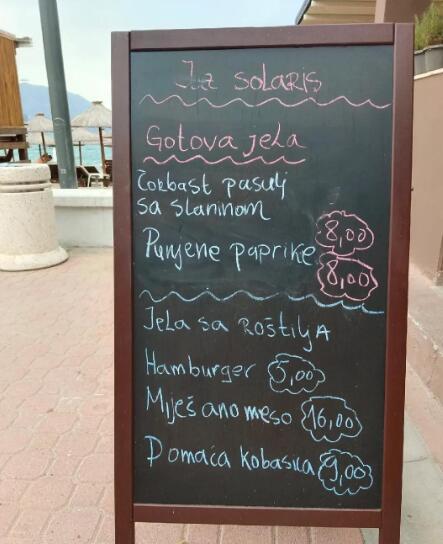 Jz SOLARIS
Gotova jela
Čorbast pasulj
sa slaninom 8,00
Punjene paprike 8,00
Jela sa Roštilja
Hamburger 5,00
Miješano meso 16,00
Domaća kobasica 9,00